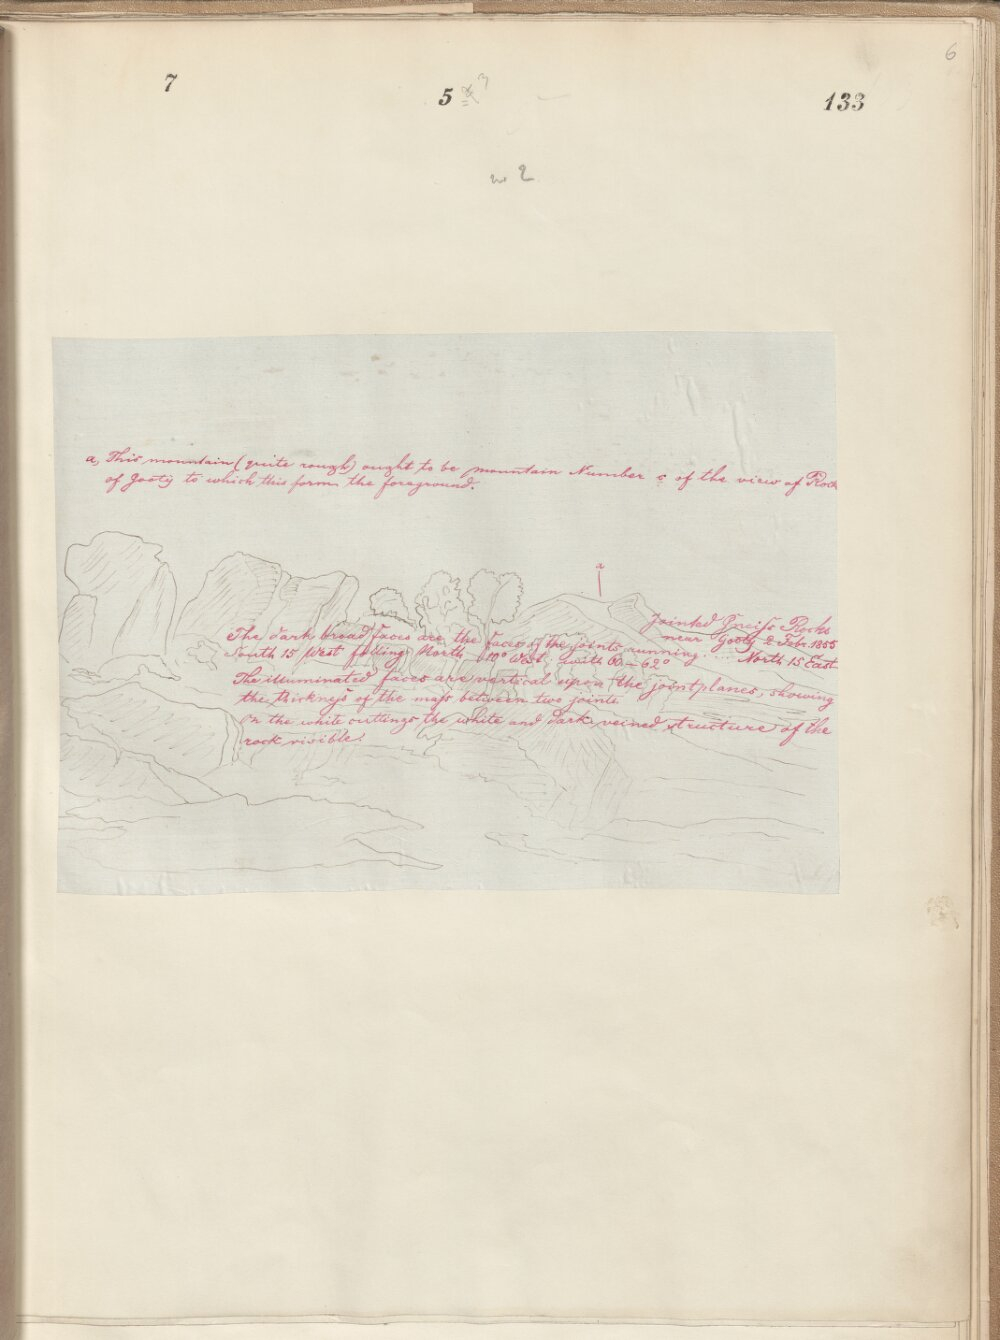 6
7
5
133
2
a, This mountain (quite rough) ought to be mountain Number c of the view of Rock
of Gooty to which this form the foreground.
a
Jointed Gneiss Rocks
near Gooty 2 Feb. 1855
The dark broad faces are the faces of the joints running North 15 East
South 15 West falling North 10° West with 60-62°
The illuminated faces are vertical upon the jointplanes, showing
the thickness of the mass between two joints
On the white outlings the white and dark veined structure of the
rock visible.